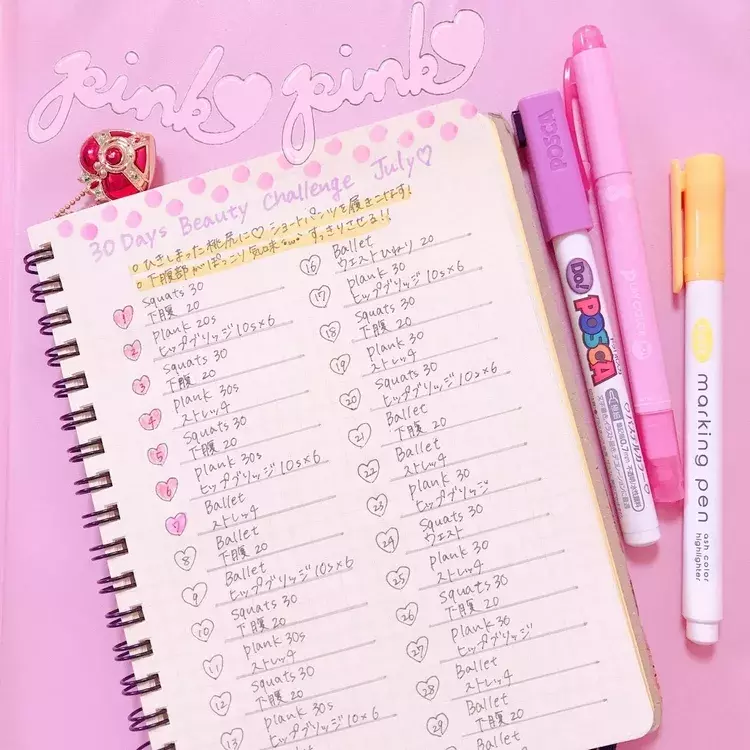 pink pink
30 Days Beauty Challenge July♡
○ひきしまった桃尻に♡ショートパンツを履きこなす!
○下腹部がぽっこり気味 すっきりさせる!!
1
Squats 30
下腹 20
2
plank 20s
ヒップブリッジ10s×6
3
Squats 30
下腹 20
4
plank 30s
ストレッチ
5
Squats 30
下腹 20
6
plank 30s
ヒップブリッジ10s×6
7
Ballet
ストレッチ
8
Ballet
下腹 20
9
Ballet
ヒップブリッジ10s×6
10
Squats 30
下腹 20
11
plank 30s
ストレッチ
12
Squats 30
下腹 20
13
plank 30s
ヒップブリッジ10s×6
16
Ballet
ウエストひねり 20
17
plank 30
ヒップブリッジ10s×6
18
Squats 30
下腹 20
19
plank 30
ストレッチ
20
Squats 30
ヒップブリッジ10s×6
21
Ballet
下腹 20
22
Ballet
ストレッチ
23
plank 30
ヒップブリッジ
24
Squats 30
ウエスト
25
plank 30
ストレッチ
26
Squats 30
下腹 20
27
plank 30
ヒップブリッジ
28
Ballet
ストレッチ
29
Ballet
下腹 20
Ballet
POSCA
Do!
POSCA
marking pen
ash color
highlighter